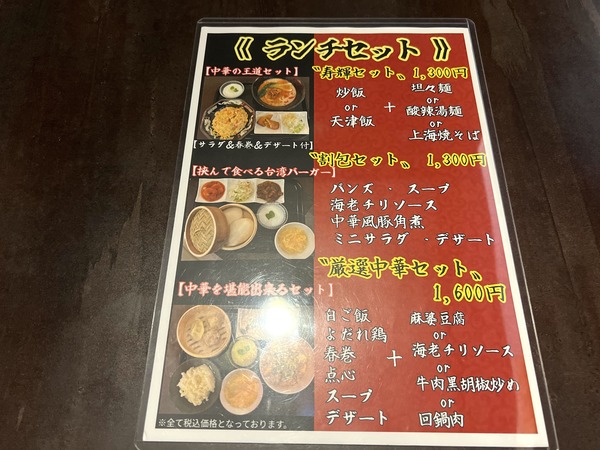 《 ランチセット 》
【中華の王道セット】
〝寿輝セット〟 1,300円
炒飯
or
天津飯
+
坦々麺
or
酸辣湯麺
or
上海焼そば
【サラダ&春巻&デザート付】
〝割包セット〟 1,300円
【挟んで食べる台湾バーガー】
バンズ ・ スープ
海老チリソース
中華風豚角煮
ミニサラダ ・ デザート
〝厳選中華セット〟
1,600円
【中華を堪能出来るセット】
白ご飯
よだれ鶏
春巻
点心
スープ
デザート
+
麻婆豆腐
or
海老チリソース
or
牛肉黒胡椒炒め
or
回鍋肉
※全て税込価格となっております。